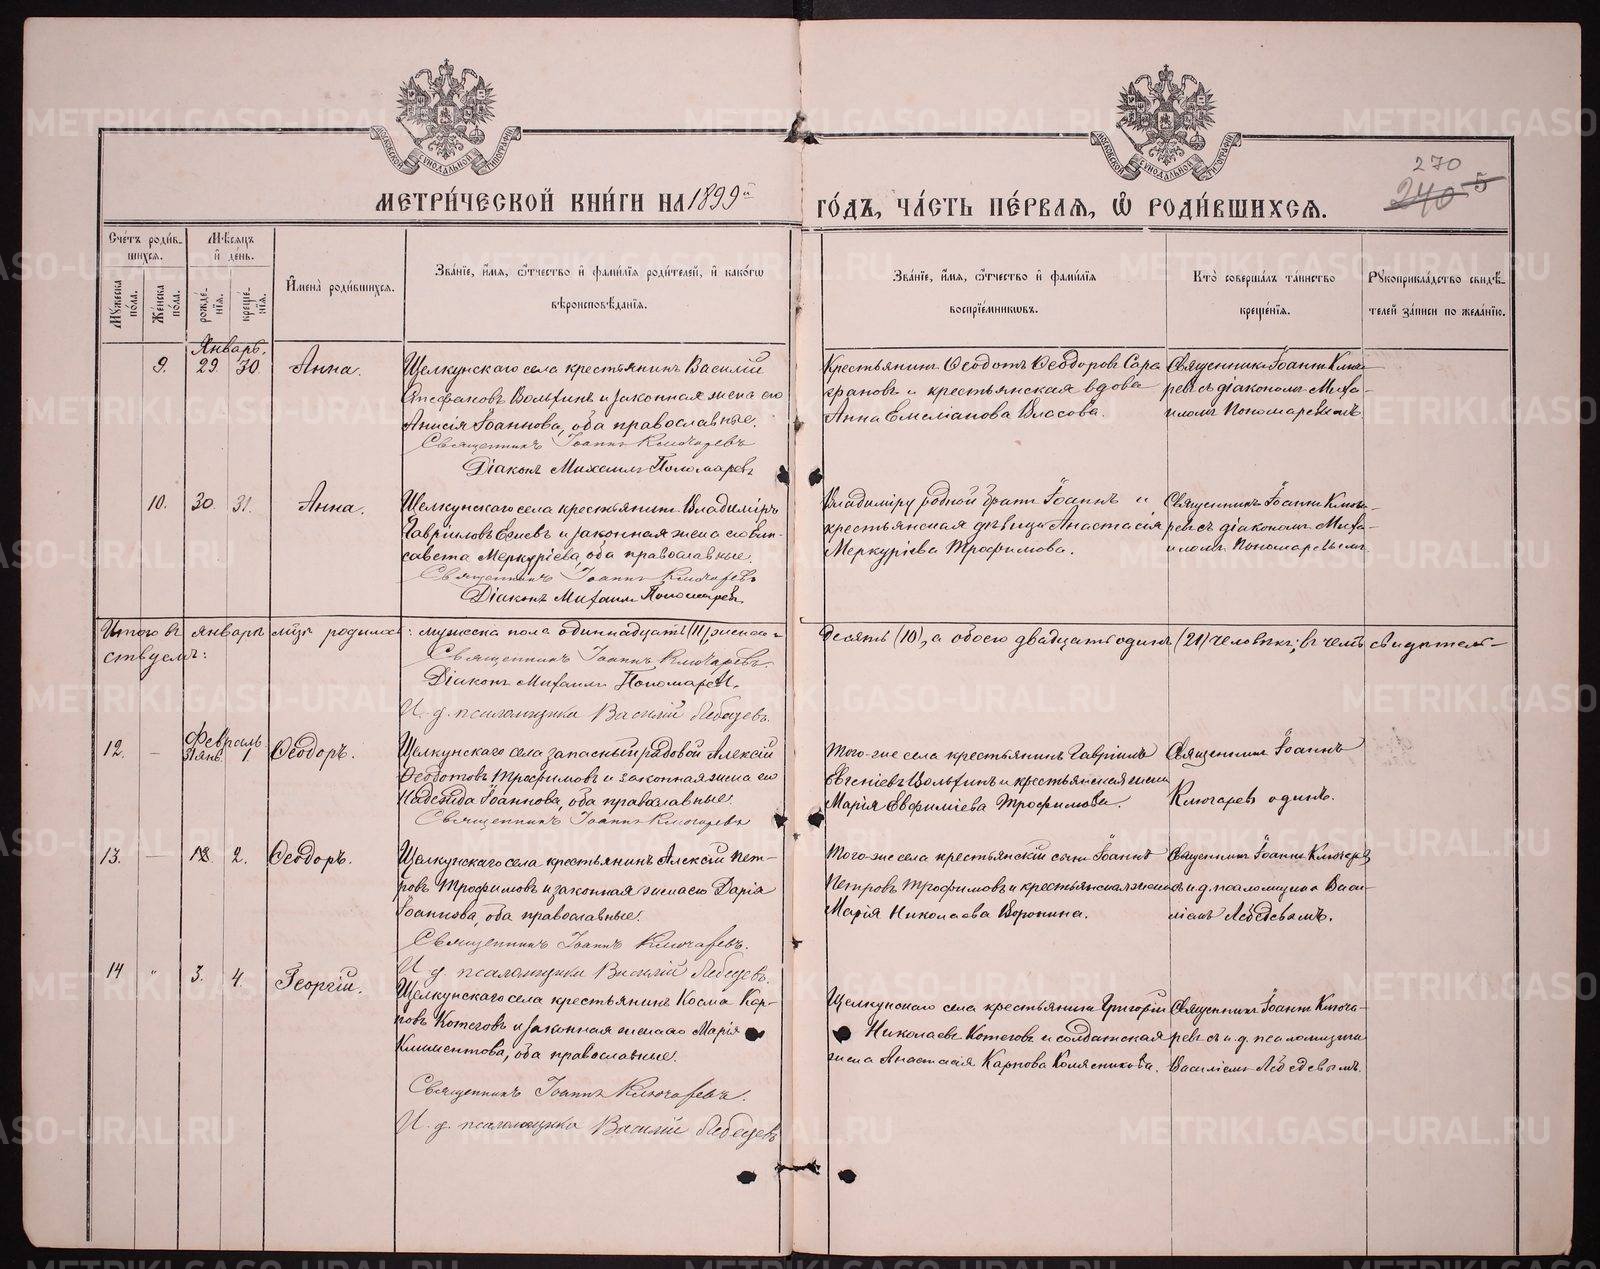 МЕТРИ́ЧЕСКОЙ КНИ́ГИ НА 1899й
ГО́ДЪ, ЧА́СТЬ ПЕ́РВАЯ, Ѽ РОДИ́ВШИХСЯ.
270
240 5
МОСКОВСКОЙ СѴНОДАЛЬНОЙ ТИПОГРАФІИ
МОСКОВСКОЙ СѴНОДАЛЬНОЙ ТИПОГРАФІИ
Сче́тъ роди́вшихся.
Му́жеска по́ла.
Же́нска по́ла.
Мѣ́сяцъ и де́нь.
рожде́нія.
креще́нія.
Имена̀ роди́вшихся.
Зва́ніе, и́мя, ѻ́тчество и фами́лія роди́телей, и како́гѡ
вѣроисповѣ́данія.
Зва́ніе, и́мя, ѻ́тчество и фами́лія
воспріе́мникѡвъ.
Кто̀ соверша́лъ та́инство
креще́нія.
Рꙋкоприкла́дство свидѣ́-
телей за́писи по жела́нію.
Январь.
9. 29. 30. Анна.
Щелкунскаго села крестьянинъ Василій
Волхинъ и законная жена его
Анисія Іоаннова, оба православные.
Священникъ Іоаннъ Ключаревъ
Діаконъ Михаилъ Пономаревъ
Крестьянинъ Ѳеодотъ Ѳеодоровъ Сара
и крестьянская вдова
Анна Емеліанова Власова.
Священникъ Іоаннъ Клюва-
ревъ съ діакономъ Миха-
иломъ Пономаревымъ.
10. 30. 31. Анна.
Щелкунскаго села крестьянинъ Владиміръ
Гавріиловъ и законная жена его Ели-
савета Меркуріева, оба православные.
Священникъ Іоаннъ Ключаревъ
Діаконъ Михаилъ Пономаревъ
Владиміру родной братъ Іоаннъ и
крестьянская дѣвица Анастасія
Меркуріева Трофимова.
Священникъ Іоаннъ Ключа-
ревъ съ діакономъ Миха-
иломъ Пономаревымъ.
Итого въ январѣ мцѣ родилось: мужеска пола одиннадцать (11), женска
десять (10), а обоего двадцать одинъ (21) человѣкъ; въ чемъ свидѣтель-
ствуемъ:
Священникъ Іоаннъ Ключаревъ.
Діаконъ Михаилъ Пономаревъ.
И. д. псаломщика Василій Лебедевъ.
Февраль
12. — 31 янв. 1 Ѳеодоръ.
Щелкунскаго села запасный рядовой Алексій
Ѳеодотовъ Трофимовъ и законная жена его
Надежда Іоаннова, оба православные.
Священникъ Іоаннъ Ключаревъ
Того-же села крестьянинъ Гавріилъ
Евгеніевъ Вольхинъ и крестьянская жена
Марія Евфиміева Трофимова.
Священникъ Іоаннъ
Ключаревъ одинъ.
13. — 2. Ѳеодоръ.
Щелкунскаго села крестьянинъ Алексій Пет-
ровъ Трофимовъ и законная жена его Дарія
Іоаннова, оба православные.
Священникъ Іоаннъ Ключаревъ.
И. д. псаломщика Василій Лебедевъ.
Того-же села крестьянскій сынъ Іоаннъ
Петровъ Трофимовъ и крестьянская жена
Марія Николаева Воронина.
Священникъ Іоаннъ Ключаревъ
съ и. д. псаломщика Васи-
ліемъ Лебедевымъ.
14 " 3. 4. Георгій.
Щелкунскаго села крестьянинъ Косма Кар-
повъ Котеговъ и законная жена его Марія
Климентова, оба православные.
Священникъ Іоаннъ Ключаревъ.
И. д. псаломщика Василій Лебедевъ
Щелкунскаго села крестьянинъ Григорій
Николаевъ Котеговъ и солдатская
жена Анастасія Карпова Колясникова.
Священникъ Іоаннъ Ключа-
ревъ съ и. д. псаломщика
Василіемъ Лебедевымъ.
METRIKI.GASO-URAL.RU